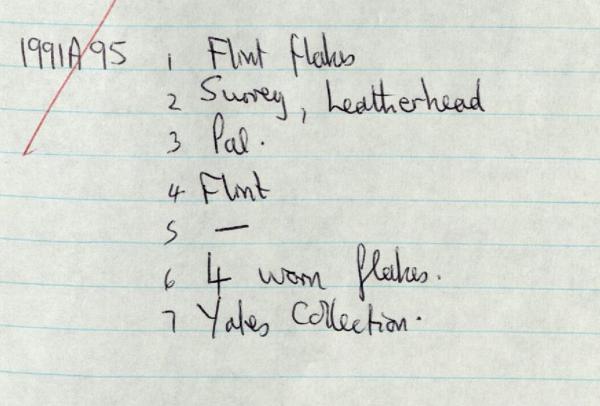 1991A95 1 Flint flakes
2 Surrey, Leatherhead
3 Pal.
4 Flint
5 —
6 4 worn flakes.
7 Yates Collection.